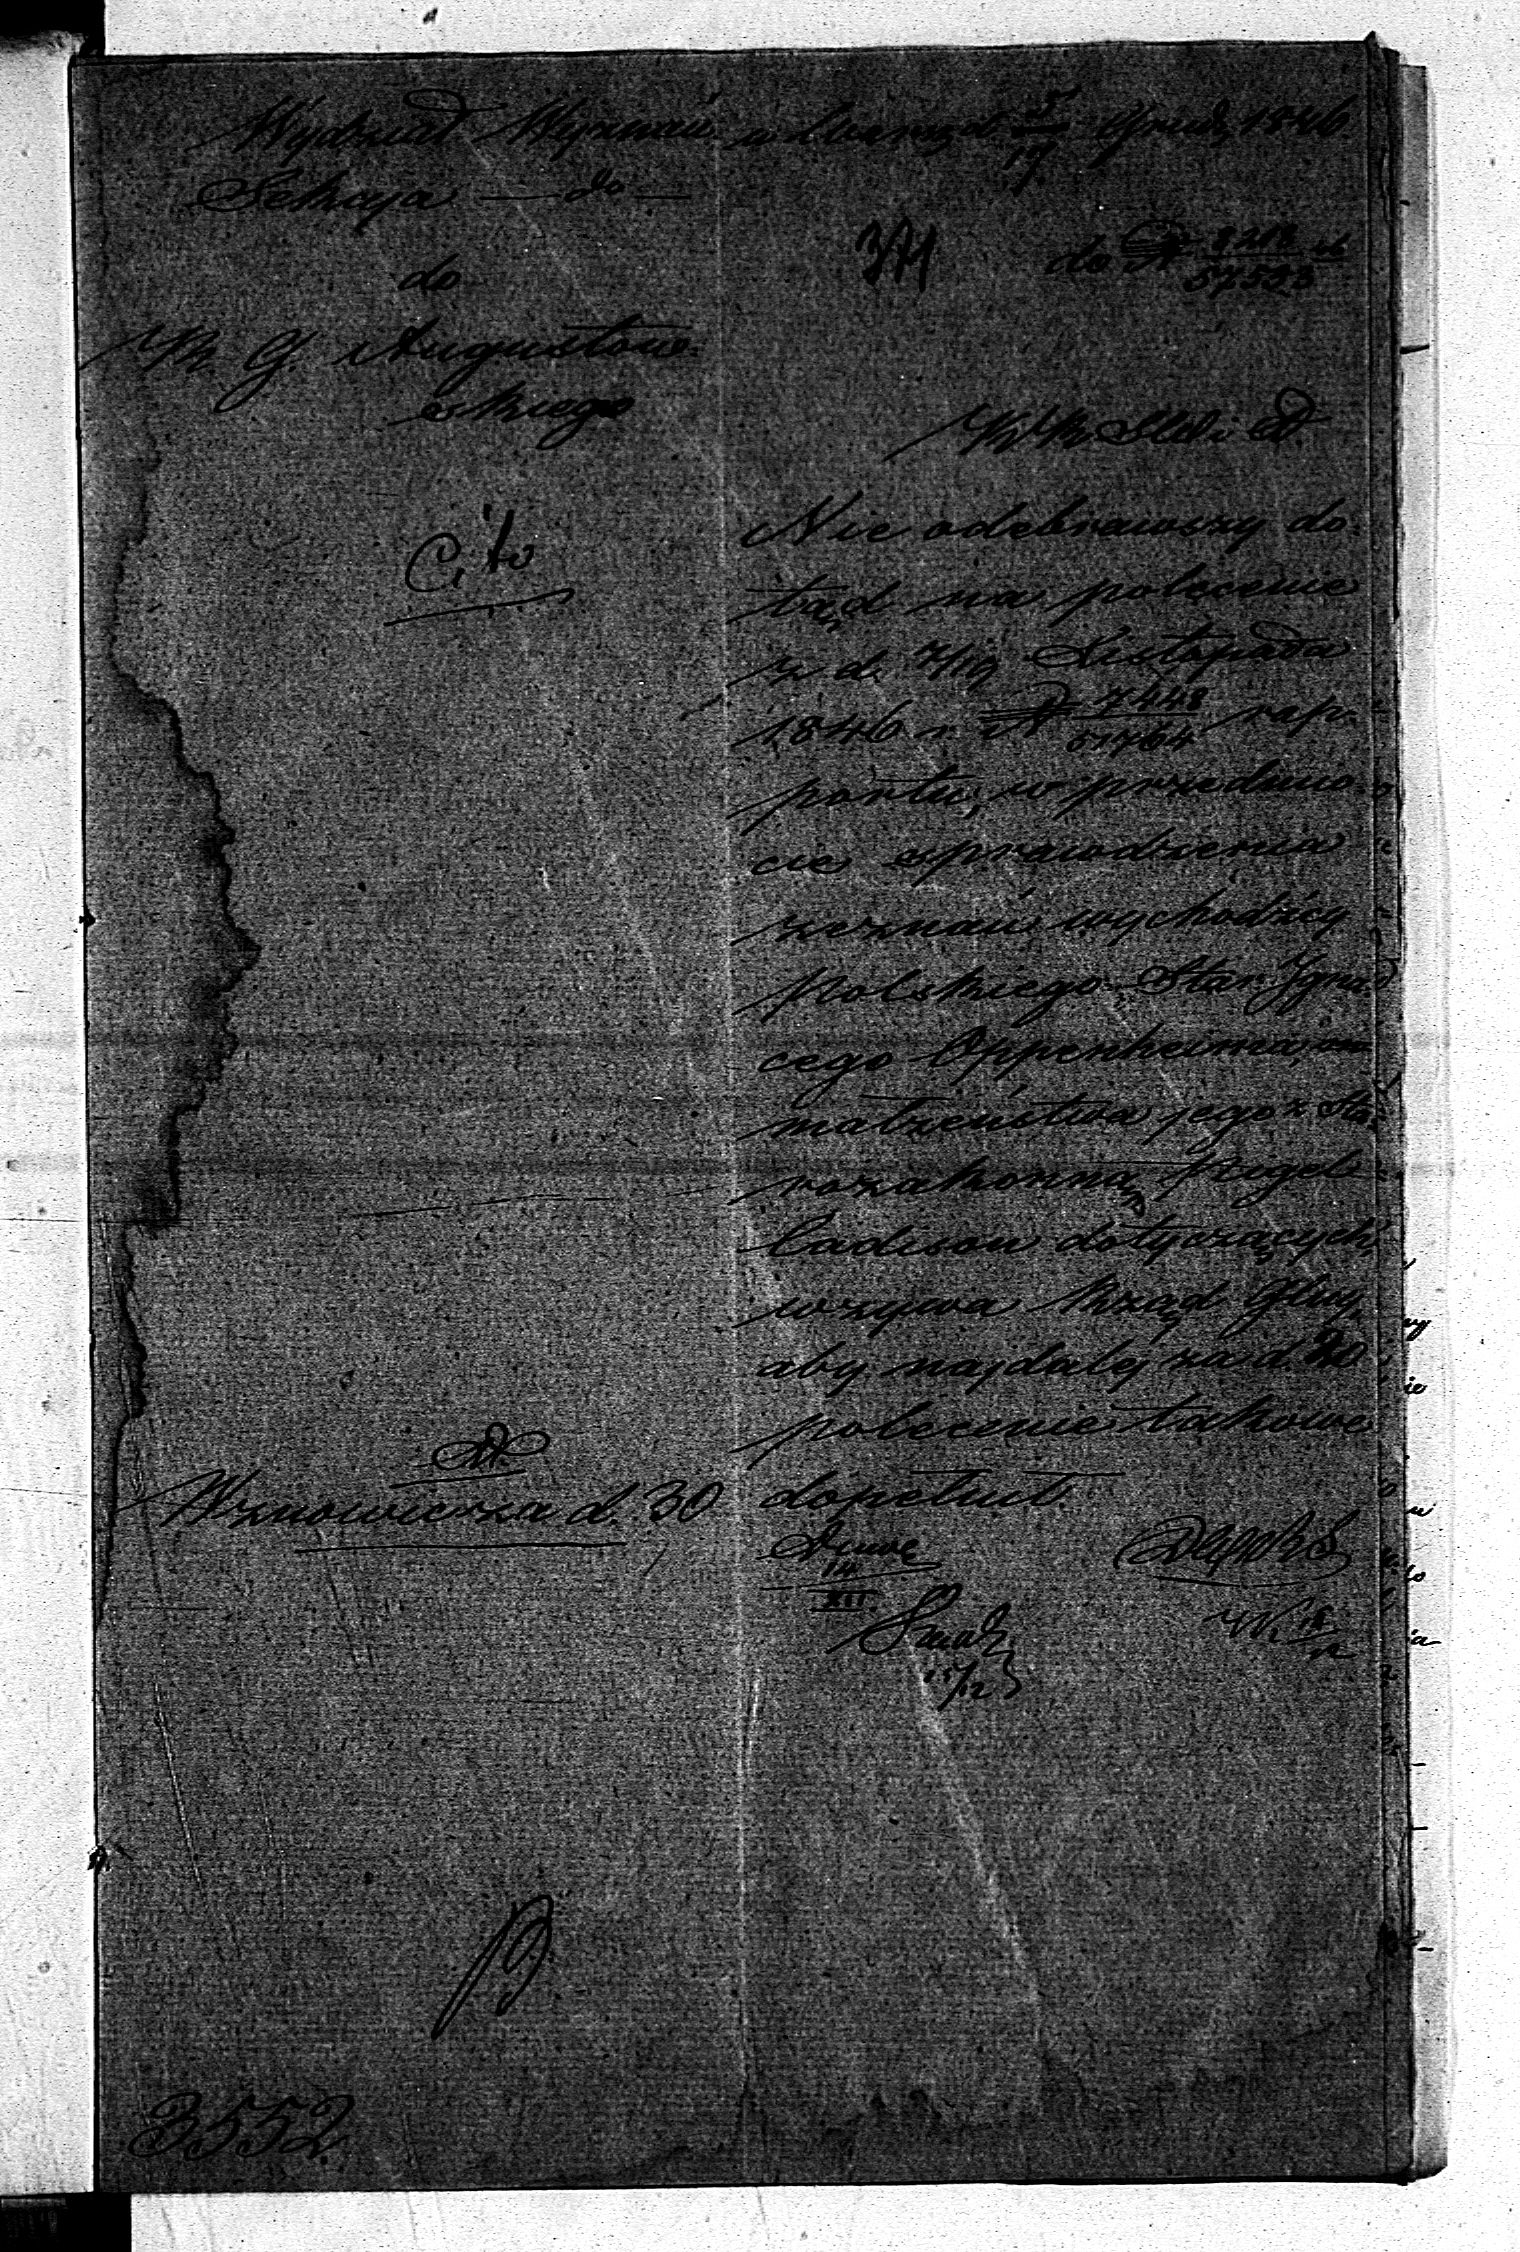 Wydział Wyznań w Warsz. d. 5/17 Grud. 1846.
Sekcya — do —
371
do N 8218/57593
do
R. G. Augustow-
skiego
KRSW i D
Cito
Nie odebrawszy do-
tąd na polecenie
z d. 7/19 Listopada
1846 r. N 7448/51764 rap-
portu, w przedmio-
cie sprawdzenia
zeznań wychodźcy
Polskiego Star. Igna-
cego Oppenheima,
małżeństwa jego z Sta-
rozakonną
Ladison dotyczących,
wzywa Rząd Gub.
aby najdalej za d. 20
polecenie takowe
dopełnił.
Wznowić za d. 30
14/XII
15/12
3552